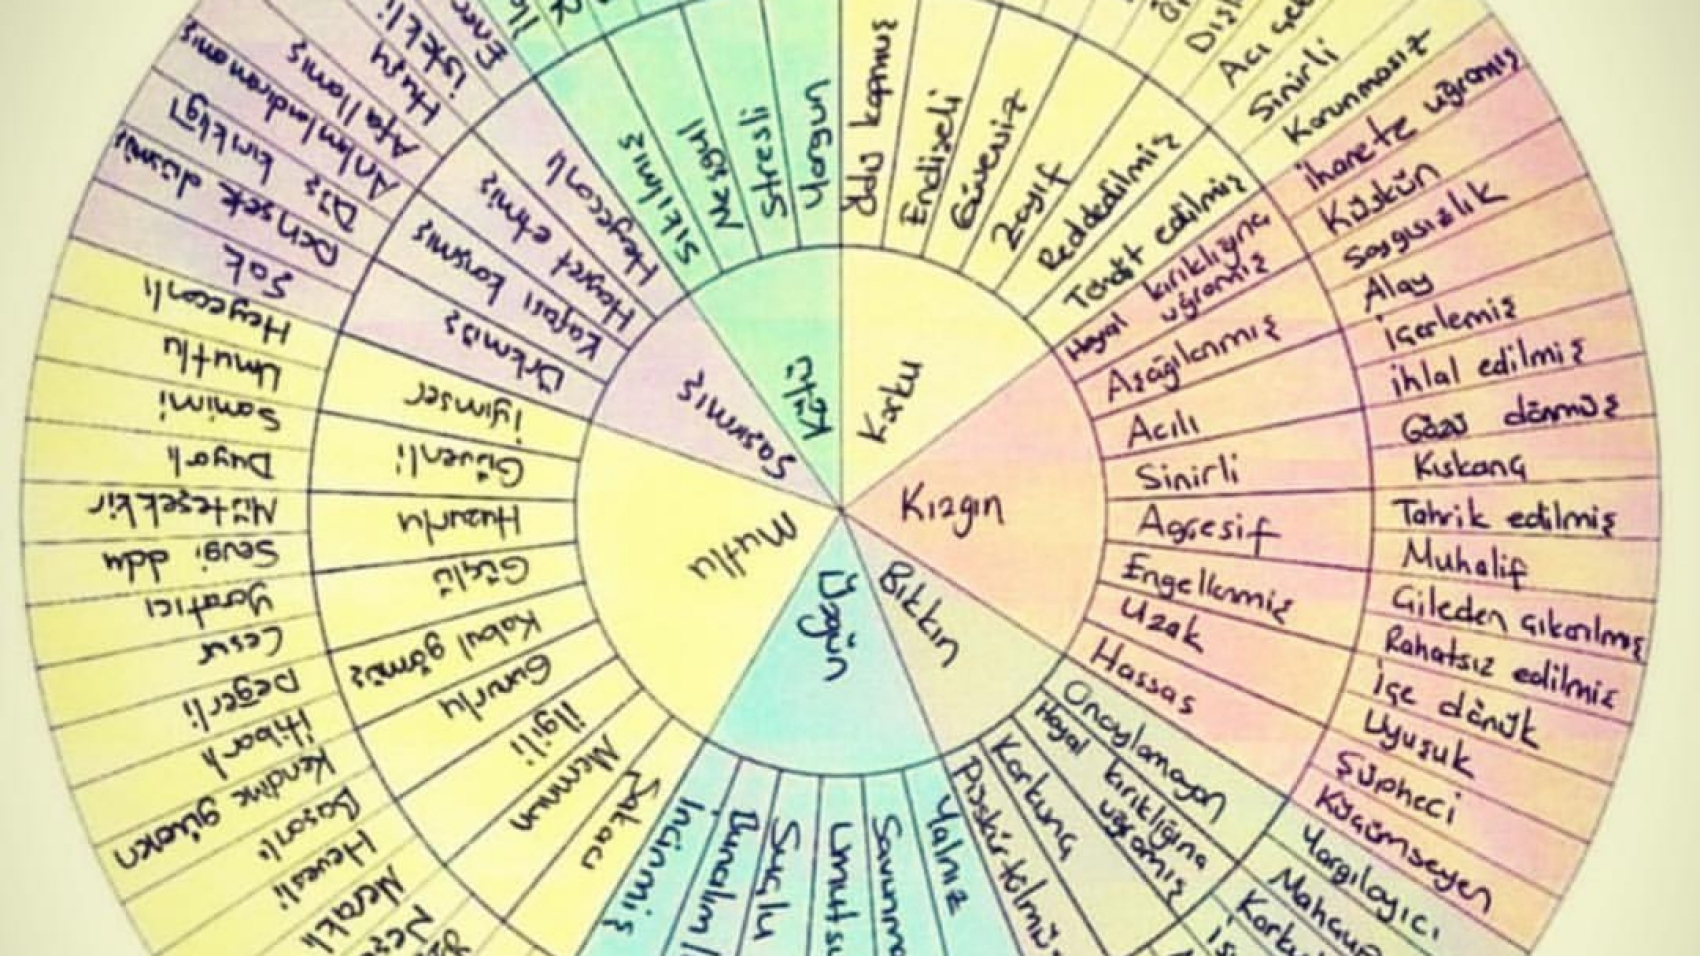 Korku
Kızgın
Bıkkın
Üzgün
Mutlu
Şaşırmış
Kötü
Ödü kopmuş
Endişeli
Güvensiz
Zayıf
Reddedilmiş
Tehdit edilmiş
Hayal kırıklığına
uğramış
Aşağılanmış
Acılı
Sinirli
Agresif
Engellenmiş
Uzak
Hassas
Onaylamayan
Hayal kırıklığına
uğramış
Korkunç
Püskürtülmüş
Yalnız
Umutsu
Suçlu
Bunalım
İncinmiş
Şakacı
Memnun
İlgili
Gururlu
Kabul görmüş
Güçlü
Huzurlu
Güvenli
İyimser
Ürkmüş
Kafası karışmış
Hayret etmiş
Heyecanlı
Sıkılmış
Meşgul
Stresli
Yorgun
Acı çek
Sinirli
Korunmasız
İhanete uğramış
Küskün
Saygısızlık
Alay
İçerlemiş
İhlal edilmiş
Gözü dönmüş
Kıskanç
Tahrik edilmiş
Muhalif
Çileden çıkarılmış
Rahatsız edilmiş
İçe dönük
Uyuşuk
Şüpheci
Küçümseyen
Yargılayıcı
Mahcup
Korku
Meraklı
Hevesli
Başarılı
Kendine güvenen
İtibarlı
Değerli
Cesur
Yaratıcı
Sevgi dolu
Müteşekkir
Duyarlı
Samimi
Umutlu
Heyecanlı
Şok
Dehşete düşmüş
Düş kırıklığı
Anlamlandıramamış
Afallamış
Huşu
İstekli
Ener